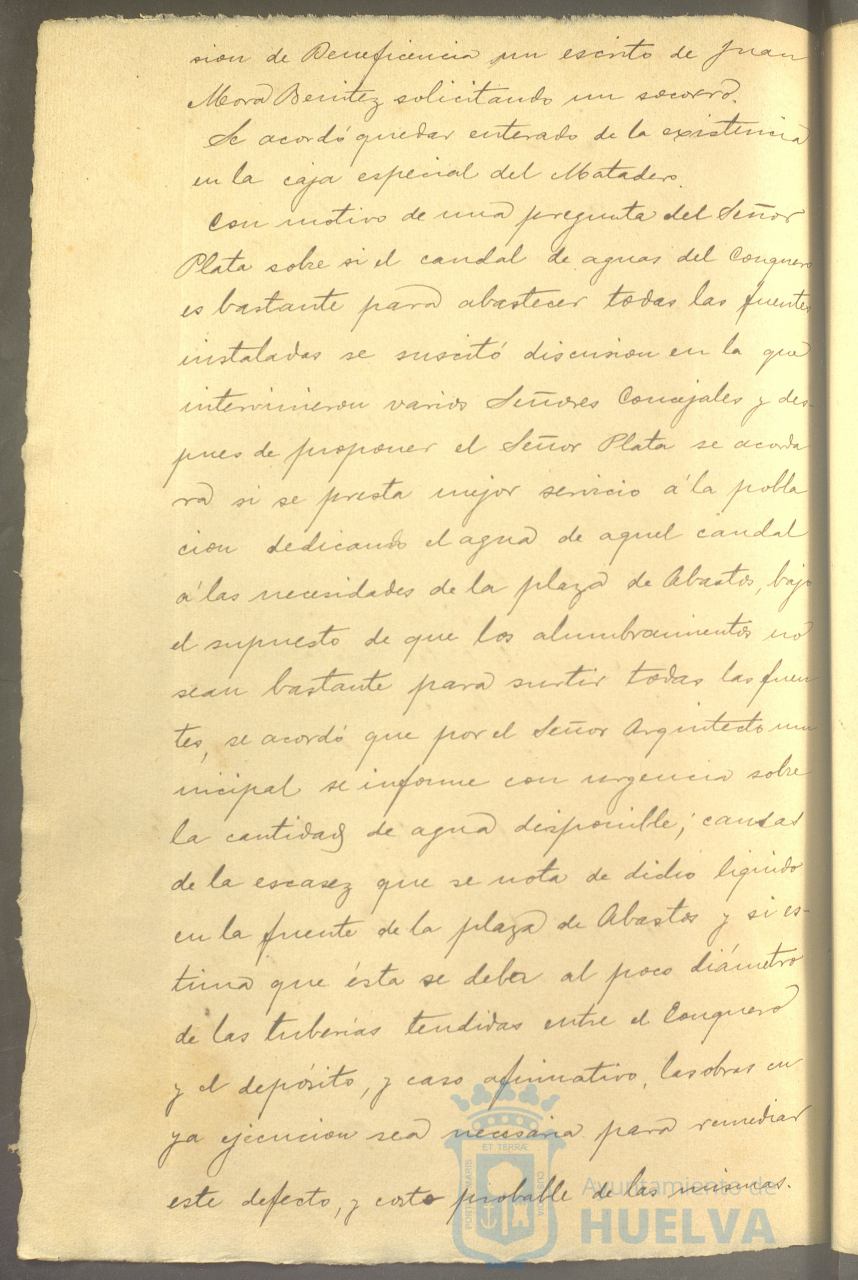 sion de Beneficencia un escrito de Juan
Mora Benitez solicitando un socorro.
Se acordó quedar enterado de la existencia
en la caja especial del Matadero.
Con motivo de una pregunta del Señor
Plata sobre si el caudal de aguas del Conquero
es bastante para abastecer todas las fuentes
instaladas se suscitó discusion en la que
intervinieron varios Señores Concejales y des-
pues de proponer el Señor Plata se acorda
ra si se presta mejor servicio á la pobla
cion dedicando el agua de aquel caudal
á las necesidades de la plaza de Abastos, bajo
el supuesto de que los alumbramientos no
sean bastante para surtir todas las fuen
tes, se acordó que por el Señor Arquitecto mu
nicipal se informe con urgencia sobre
la cantidad de agua disponible; causas
de la escasez que se nota de dicho liquido
en la fuente de la plaza de Abastos y si es-
tima que ésta se deba al poco diámetro
de las tuberías tendidas entre el Conquero
y el depósito, y caso afirmativo, las obras cu
ya ejecucion sea necesaria para remediar
este defecto, y costo probable de las mismas.
PORTUS MARIS
ET TERRÆ
CUSTODIA
Ayuntamiento de
HUELVA